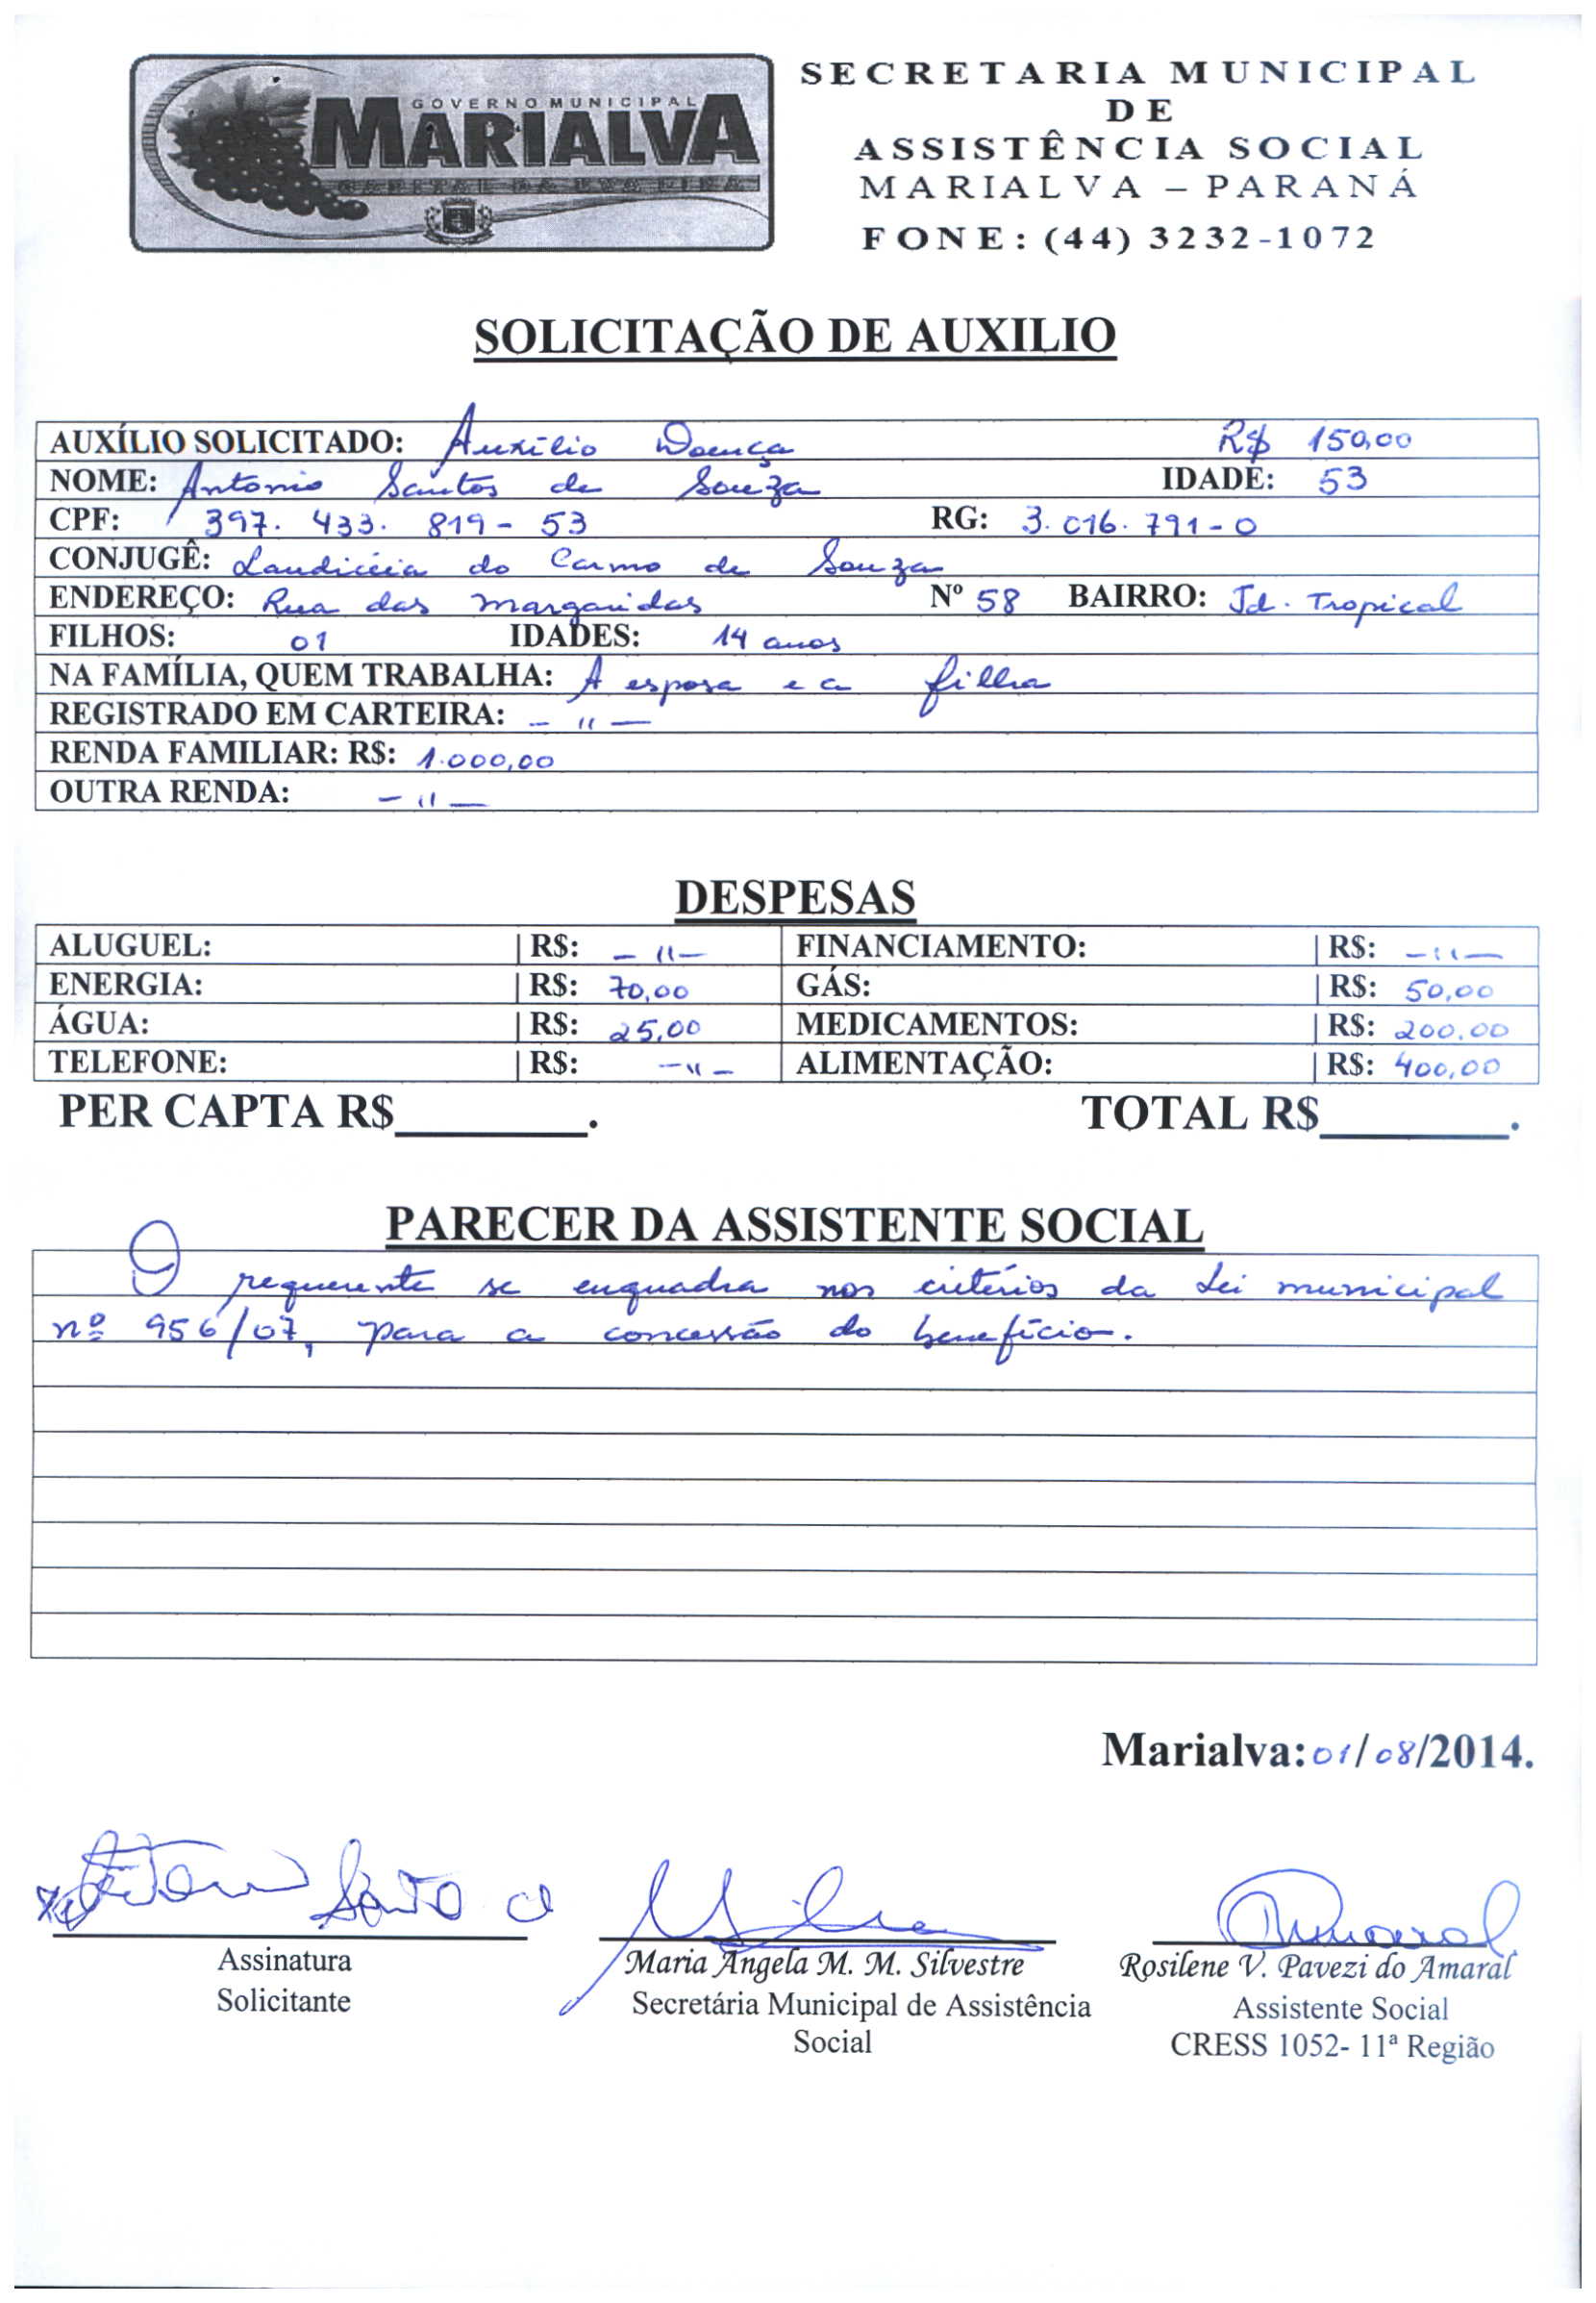 GOVERNO MUNICIPAL
MARIALVA
CAPITAL DA UVA FINA
SECRETARIA MUNICIPAL
DE
ASSISTÊNCIA SOCIAL
MARIALVA – PARANÁ
FONE: (44) 3232-1072
SOLICITAÇÃO DE AUXILIO
AUXÍLIO SOLICITADO: Auxílio Doença R$ 150,00
NOME: Antonio Santos de Souza IDADE: 53
CPF: 397. 433. 819- 53 RG: 3.016.791-0
CONJUGÊ: Laudicéia do Carmo de Souza
ENDEREÇO: Rua das Margaridas Nº 58 BAIRRO: Jd. Tropical
FILHOS: 01 IDADES: 14 anos
NA FAMÍLIA, QUEM TRABALHA: A esposa e a filha
REGISTRADO EM CARTEIRA: - " -
RENDA FAMILIAR: R$: 1.000,00
OUTRA RENDA: - " -
DESPESAS
ALUGUEL: | R$: - " - FINANCIAMENTO: | R$: - " -
ENERGIA: | R$: 70,00 GÁS: | R$: 50,00
ÁGUA: | R$: 25,00 MEDICAMENTOS: | R$: 200,00
TELEFONE: | R$: - " - ALIMENTAÇÃO: | R$: 400,00
PER CAPTA R$________. TOTAL R$________.
PARECER DA ASSISTENTE SOCIAL
O requerente se enquadra nos critérios da Lei municipal
nº 956/07, para a concessão do benefício.
Marialva: 01/08/2014.
Assinatura
Solicitante
Maria Ângela M. M. Silvestre
Secretária Municipal de Assistência
Social
Rosilene V. Pavezi do Amaral
Assistente Social
CRESS 1052- 11ª Região